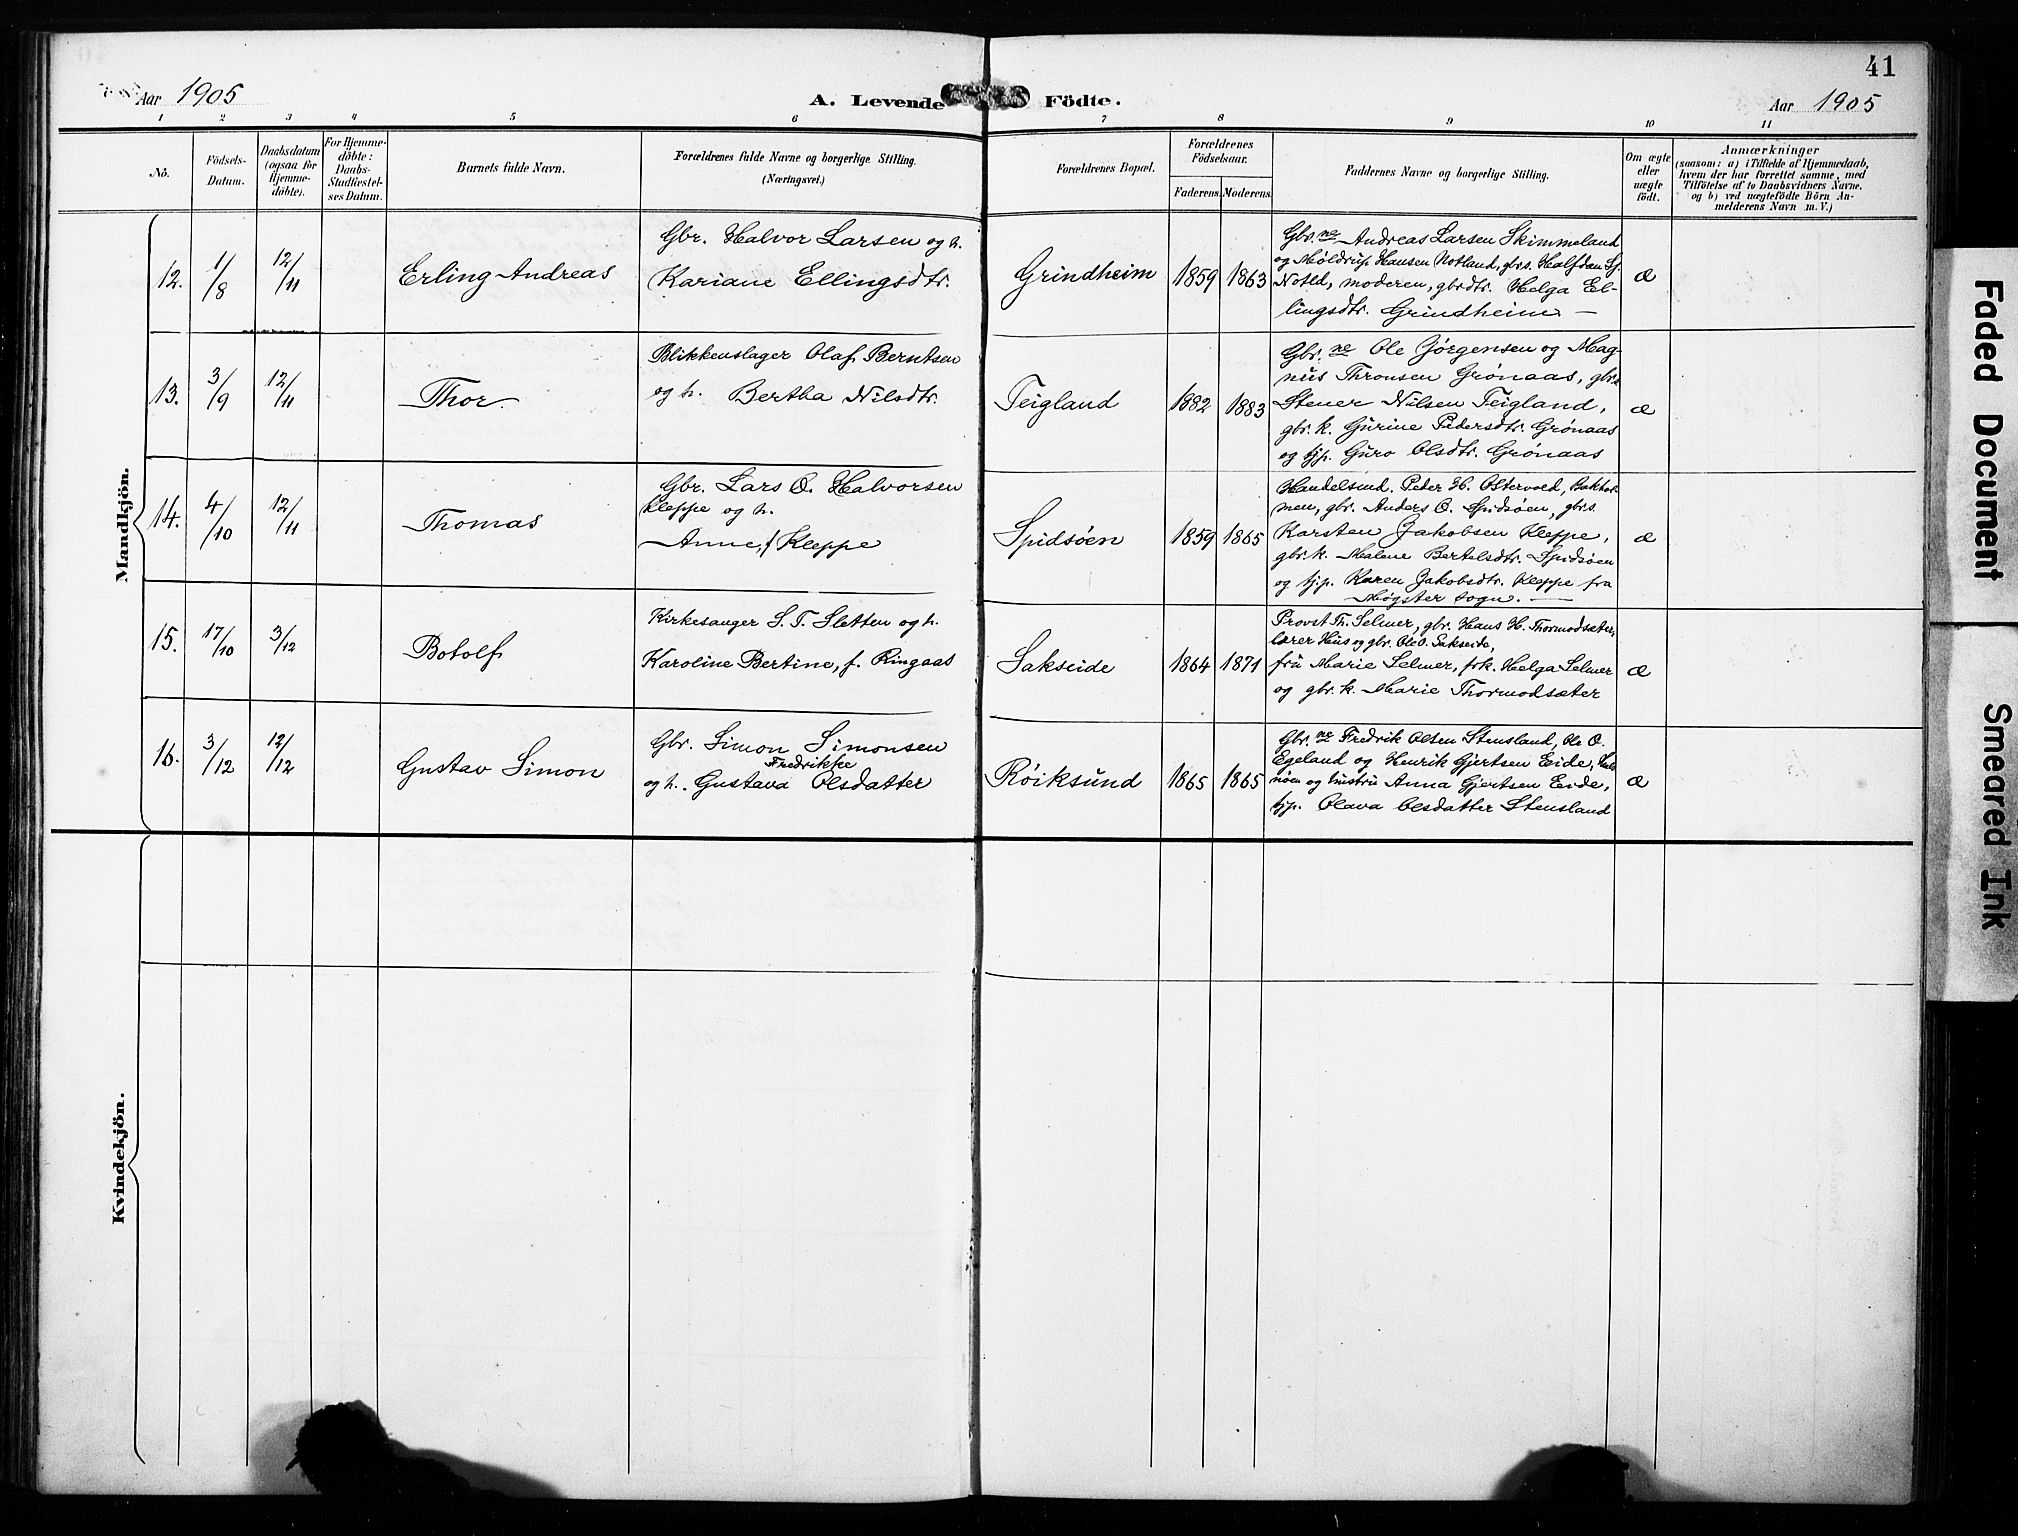 41
Aar 1905
A. Levende Födte.
Aar 1905
1 2 3 4 5 6 7 8 9 10 11
No.
Födsels-
Datum.
Daabsdatum
(ogsaa for
Hjemme-
döbte).
For Hjemme-
döbte:
Daabs-
Stadfæstel-
ses Datum.
Barnets fulde Navn.
Forældrenes fulde Navne og borgerlige Stilling.
(Næringsvei.)
Forældrenes Bopæl.
Forældrenes
Födselsaar.
Faderens. Moderens.
Faddernes Navne og borgerlige Stilling.
Om ægte
eller
uægte
födt.
Anmærkninger
(saasom: a) i Tilfælde af Hjemmedaab,
hvem der har forrettet samme, med
Tilföielse af to Daabsvidners Navne,
og b) ved uægtefödte Börn An-
melderens Navn m. V.)
Mandkjön.
12.
1/8
12/11
Erling Andreas
Gbr. Halvor Larsen og h.
Kariane Ellingsdtr.
Grindheim
1859
1863
Gbr.ne Andreas Larsen Skimmeland
og Møldrup Hansen Notland, gbrs. Halfdan
Notld, moderen, gbrdtr. Helga El-
lingsdtr. Grindheim —
æ
13.
3/9
12/11
Thor.
Blikkenslager Olaf Berntsen
og h. Bertha Nilsdtr.
Teigland
1882
1883
Gbr.ne Ole Jørgensen og Mag-
nus Thronsen Grønaas, gbrs
Stener Nilsen Teigland,
gbr. k. Gurine Pedersdtr. Grønaas
og tjp. Guro Olsdtr. Grønaas
æ
14.
4/10
12/11
Thomas
Gbr. Lars O. Halvorsen
Kleppe og h.
Anne, f. Kleppe
Spidsøen
1859
1865
Handelsmd. Peder H. Østervold,
gbr. Anders O. Spidsøen, gbrs.
Karsten Jakobsen Kleppe,
gbr. k. Malene Bertelsdtr. Spidsøen
og tjp. Karen Jakobsdtr. Kleppe fra
Møgster sogn. —
æ
15.
17/10
3/12
Botolf
Kirkesanger S. T. Sletten og h.
Karoline Bertine, f. Ringaas
Sakseide
1864
1871
Provst Th. Selmer, gbr. Hans H. Thormodsæter,
lærer Hus og gbr. Ole O. Sakseide,
fru Marie Selmer, frk. Helga Selmer
og gbr. k. Marie Thormodsæter
æ
16.
3/12
12/12
Gustav Simon
Gbr. Simon Simonsen
Fredrikke
og h. Gustava Olsdatter
Røiksund
1865
1865
Gbr.ne Fredrik Olsen Stensland, Ole O.
Egeland og Henrik Gjertsen Eide,
og hustru Anna Gjertsen Eide,
tjp. Olava Olsdatter Stensland
æ
Kvindekjön.
Faded Document
Smeared Ink